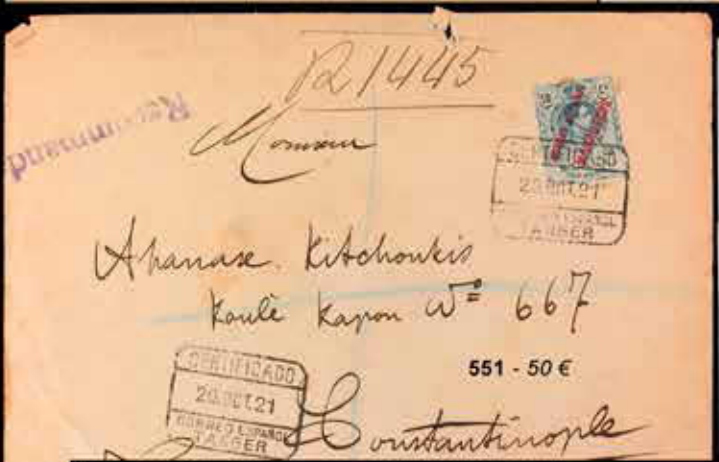 R 1445
Recommandé
Monsieur
CERTIFICADO
20.OCT.21
CORREO ESPAÑOL
TANGER
Athanase Kitchoukis
Koulè Kapou Nº 667
551 - 50 €
CERTIFICADO
20.OCT.21
CORREO ESPAÑOL
TANGER
Constantinople